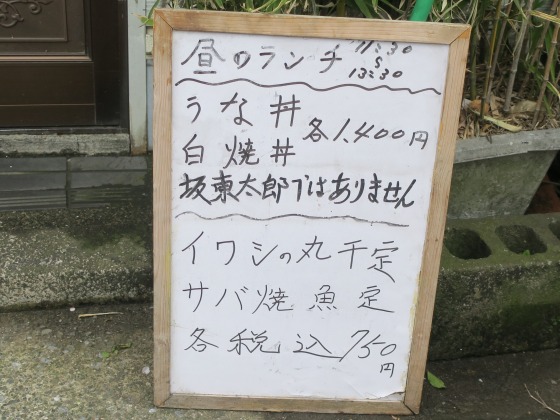 昼のランチ 11:30
〜
13:30
うな丼
白焼丼
各1,400円
坂東太郎ではありません
イワシの丸干定
サバ焼魚定
各税込750円